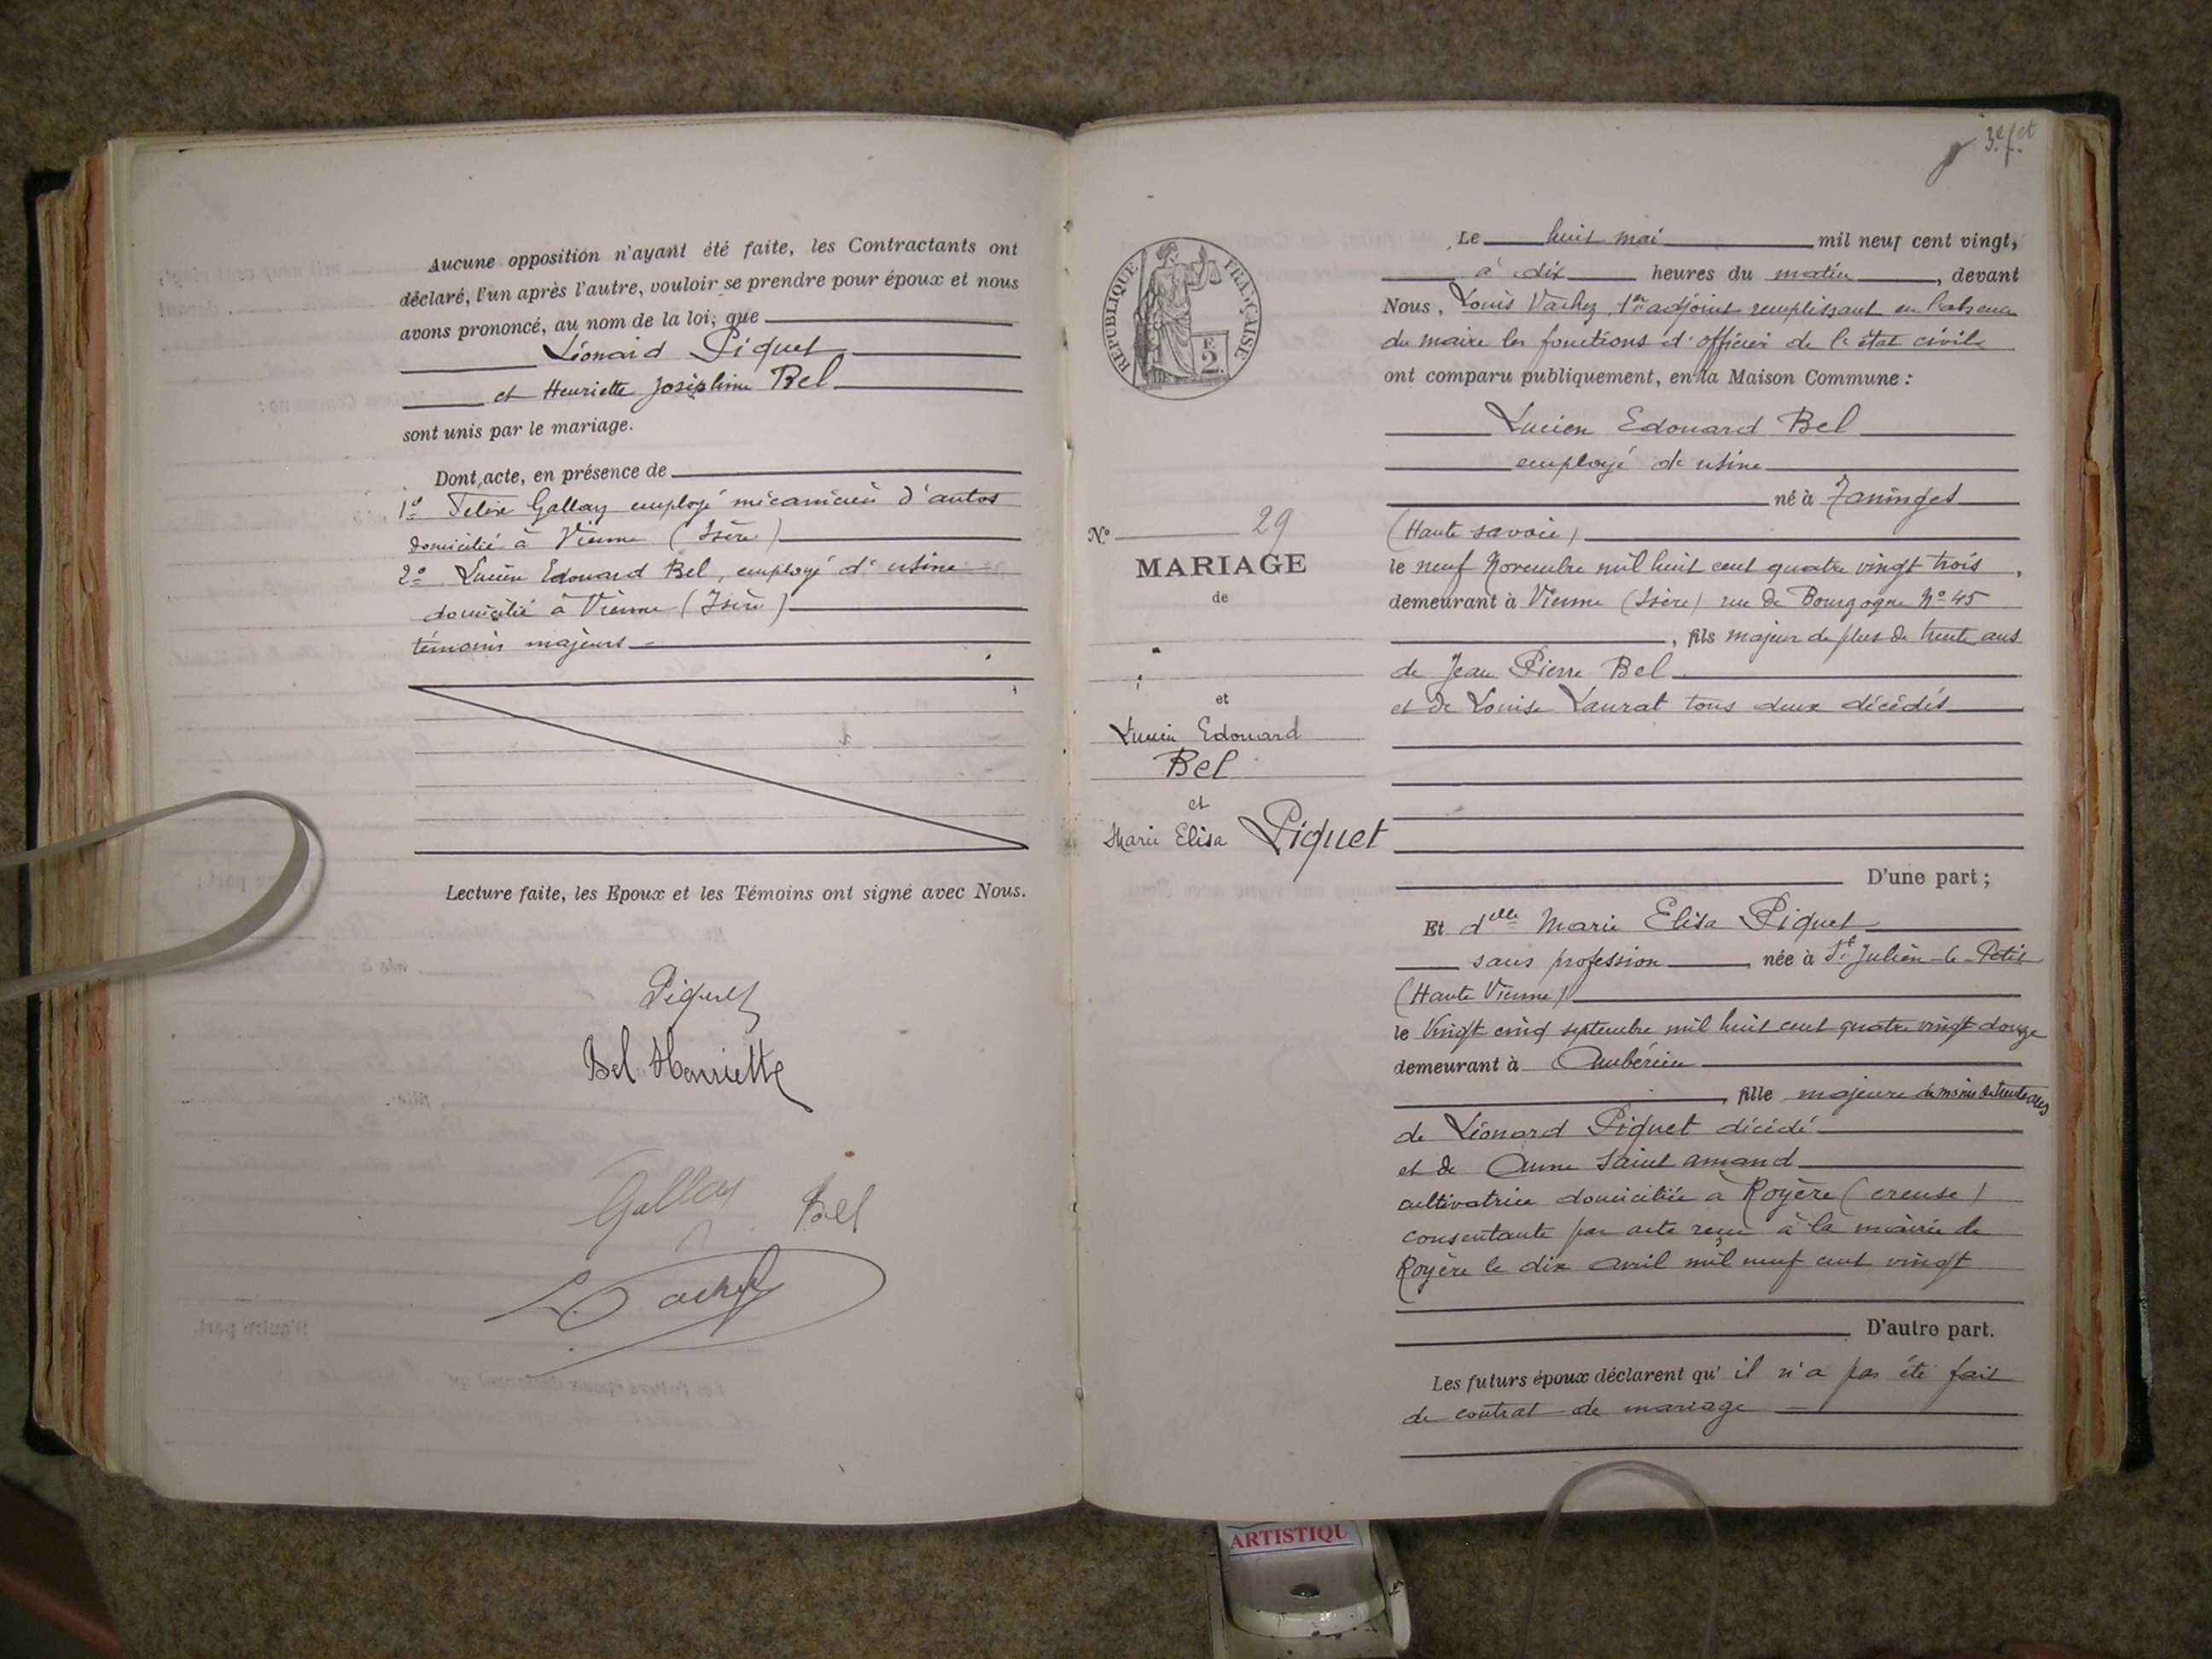 Aucune opposition n'ayant été faite, les Contractants ont
déclaré, l'un après l'autre, vouloir se prendre pour époux et nous
avons prononcé, au nom de la loi, que
Léonard Piquet
et Henriette Joséphine Bel
sont unis par le mariage.
Dont acte, en présence de
1º Félix Gallay employé mécanicien d'autos
domicilié à Vienne (Isère)
2º Lucien Edouard Bel, employé d'usine
domicilié à Vienne (Isère)
témoins majeurs
Lecture faite, les Epoux et les Témoins ont signé avec Nous.
Piquet
Bel Henriette
Gallay Bel
L. Vachez
3e f.et
RÉPUBLIQUE FRANÇAISE
F.
2.
Nº 29
MARIAGE
de
et
Lucien Edouard
Bel
et
Marie Elisa Piquet
Le huit mai mil neuf cent vingt,
à dix heures du matin, devant
Nous, Louis Vachez, 1er adjoint remplissant en l'absence
du maire les fonctions d'officier de l'état civil
ont comparu publiquement, en la Maison Commune :
Lucien Edouard Bel
employé de usine
né à Taninges
(Haute savoie)
le neuf Novembre mil huit cent quatre vingt trois,
demeurant à Vienne (Isère) rue de Bourgogne Nº 45
, fils majeur de plus de trente ans
de Jean Pierre Bel
et de Louise Laurat tous deux décédés
D'une part ;
Et delle Marie Elisa Piquet
sans profession, née à St Julien-le-Petit
(Haute Vienne)
le Vingt cinq septembre mil huit cent quatre vingt douze
demeurant à Ambérieu
, fille majeure de moins de trente ans
de Léonard Piquet décédé
et de Anne Saint amand
cultivatrice domiciliée à Royère (creuse)
consentante par acte reçu à la mairie de
Royère le dix avril mil neuf cent vingt
D'autre part.
Les futurs époux déclarent qu'il n'a pas été fait
de contrat de mariage
ARTISTIQU